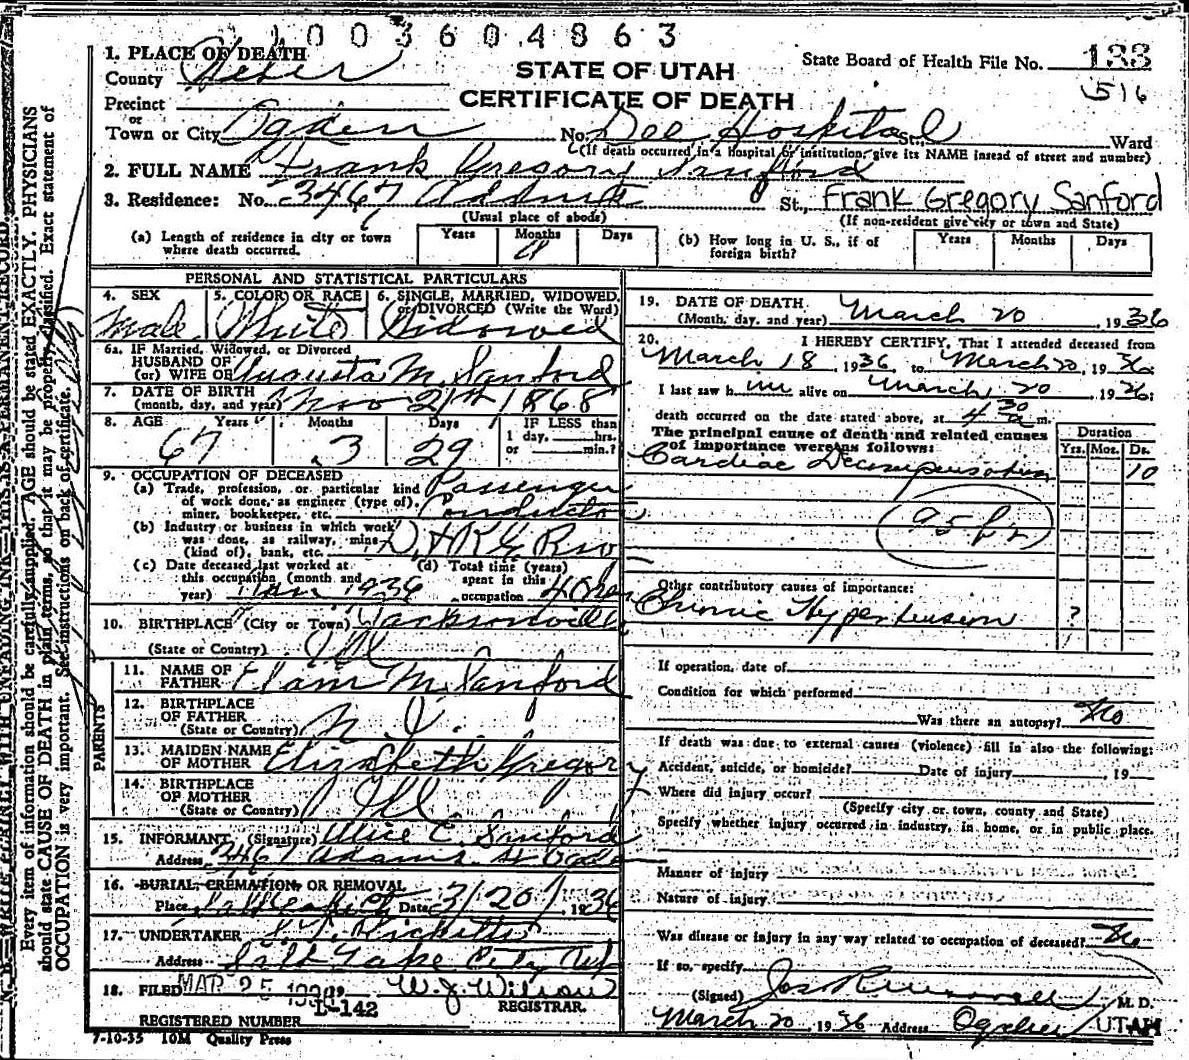 1003604863
1. PLACE OF DEATH
County Weber
STATE OF UTAH
CERTIFICATE OF DEATH
State Board of Health File No. 133
516
Precinct
or
Town or City Ogden No. Dee Hospital St., Ward
(If death occurred in a hospital or institution, give its NAME instead of street and number)
2. FULL NAME Frank Gregory Sanford
3. Residence: No. 3467 Adams St., Frank Gregory Sanford
(Usual place of abode) (If non-resident give city or town and State)
(a) Length of residence in city or town where death occurred. Years Months Days
(b) How long in U. S., if of foreign birth? Years Months Days
PERSONAL AND STATISTICAL PARTICULARS
4. SEX Male
5. COLOR OR RACE White
6. SINGLE, MARRIED, WIDOWED, or DIVORCED (Write the Word) Widowed
6a. IF Married, Widowed, or Divorced
HUSBAND OF
(or) WIFE OF Augusta M. Sanford
7. DATE OF BIRTH
(month, day, and year) Nov 21st 1868
8. AGE Years 67 Months 3 Days 29 IF LESS than 1 day. hrs. or min.?
9. OCCUPATION OF DECEASED
(a) Trade, profession, or particular kind of work done, as engineer (type of), miner, bookkeeper, etc. Passenger Conductor
(b) Industry or business in which work was done, as railway, mine (kind of), bank, etc. D & R G
(c) Date deceased last worked at this occupation (month and year) Jan 1936
(d) Total time (years) spent in this occupation 40
10. BIRTHPLACE (City or Town) Jacksonville
(State or Country) Ill
PARENTS
11. NAME OF FATHER M. Sanford
12. BIRTHPLACE OF FATHER
(State or Country)
13. MAIDEN NAME OF MOTHER Elizabeth Gregory
14. BIRTHPLACE OF MOTHER
(State or Country) Ill
15. INFORMANT (Signature) Alice E. Sanford
Address 3467 Adams St Ogden
16. BURIAL, CREMATION, OR REMOVAL
Place Salt Lake City Date 3/20/ 1936
17. UNDERTAKER Ricketts
Address Salt Lake City Ut
18. FILED MAR 25 193 W. J. Wilson
REGISTRAR.
L-142
REGISTERED NUMBER
7-10-35 10M Quality Press
19. DATE OF DEATH
(Month, day, and year) March 20, 1936
20. I HEREBY CERTIFY, That I attended deceased from
March 18, 1936, to March 20, 1936
I last saw him alive on March 20, 1936;
death occurred on the date stated above, at 4 30 a m.
The principal cause of death and related causes of importance were as follows:
Duration
Yrs. Mos. Ds.
Cardiac Decompensation 10
95
Other contributory causes of importance:
Chronic Hypertension ?
If operation, date of
Condition for which performed
Was there an autopsy? No
If death was due to external causes (violence) fill in also the following:
Accident, suicide, or homicide? Date of injury , 19
Where did injury occur?
(Specify city or town, county and State)
Specify whether injury occurred in industry, in home, or in public place.
Manner of injury
Nature of injury
Was disease or injury in any way related to occupation of deceased? No
If so, specify
(Signed) Jos M. D.
March 20 1936 Address Ogden UTAH
N. B.—WRITE PLAINLY WITH UNFADING INK—THIS IS A PERMANENT RECORD.
Every item of information should be carefully supplied. AGE should be stated EXACTLY. PHYSICIANS
should state CAUSE OF DEATH in plain terms, so that it may be properly classified. Exact statement of
OCCUPATION is very important. See instructions on back of certificate.